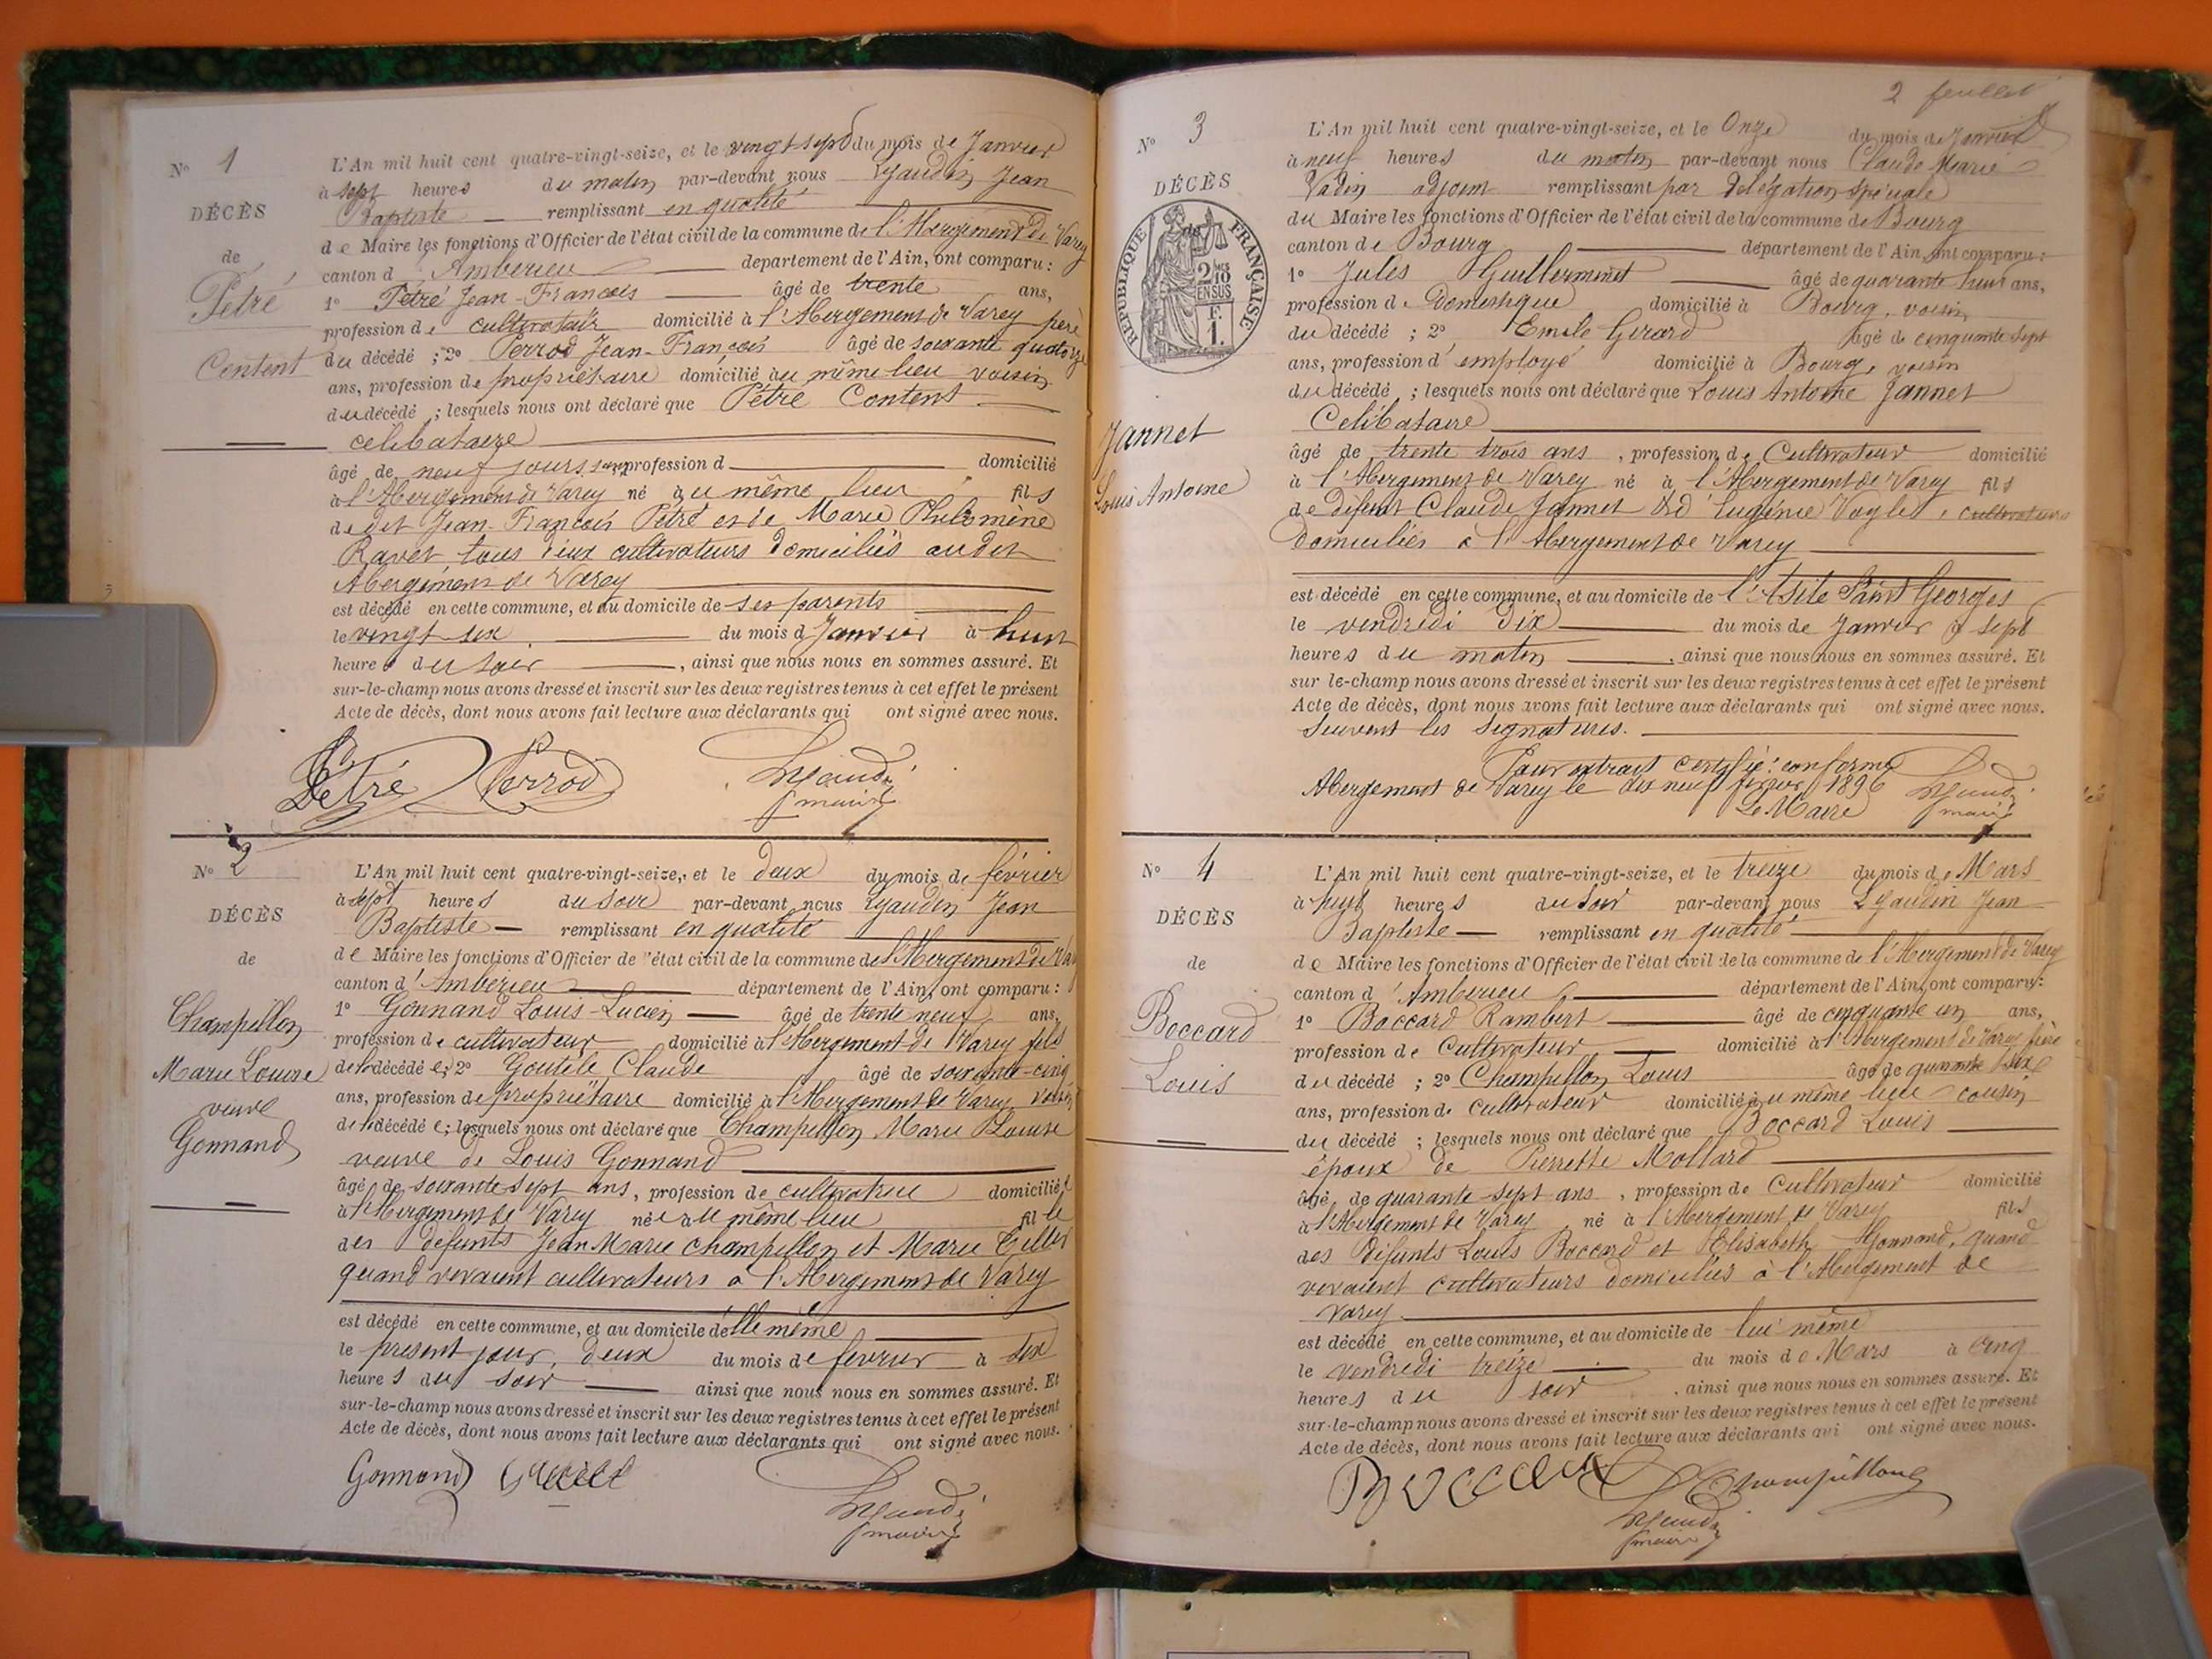 N° 1
DÉCÈS
de
Pétré
Content
L'An mil huit cent quatre-vingt-seize, et le vingt sept du mois de Janvier
à sept heures du matin par-devant nous Lyaudin Jean
Baptiste remplissant en qualité
de Maire les fonctions d'Officier de l'état civil de la commune de l'Abergement de Varey
canton d'Amberieu département de l'Ain, ont comparu :
1° Pétré Jean-François âgé de trente ans,
profession de cultivateur domicilié à l'Abergement de Varey père
du décédé ; 2° Perrod Jean-François âgé de soixante quatorze
ans, profession de propriétaire domicilié au même lieu voisin
du décédé ; lesquels nous ont déclaré que Pétré Content
celibataire
âgé de neuf jours, sans profession d domicilié
à l'Abergement de Varey né au même lieu fils
de dit Jean-François Pétré et de Marie Philomène
Ravet tous deux cultivateurs domiciliés au dit
Abergement de Varey
est décédé en cette commune, et au domicile de ses parents
le vingt six du mois d Janvier à huit
heures du soir , ainsi que nous nous en sommes assuré. Et
sur-le-champ nous avons dressé et inscrit sur les deux registres tenus à cet effet le présent
Acte de décès, dont nous avons fait lecture aux déclarants qui ont signé avec nous.
Pétré Perrod Lyaudin
maire
N° 2
DÉCÈS
de
Champillon
Marie Louise
veuve
Gonnand
L'An mil huit cent quatre-vingt-seize, et le deux du mois de février
à sept heures du soir par-devant nous Lyaudin Jean
Baptiste remplissant en qualité
de Maire les fonctions d'Officier de l'état civil de la commune de l'Abergement de Va
canton d'Amberieu département de l'Ain, ont comparu :
1° Gonnand Louis-Lucien âgé de trente neuf ans,
profession de cultivateur domicilié à l'Abergement de Varey fils
de la décédée ; 2° Goutéle Claude âgé de soixante-cinq
ans, profession de propriétaire domicilié à l'Abergement de Varey voisin
de la décédée ; lesquels nous ont déclaré que Champillon Marie Louise
veuve de Louis Gonnand
âgé de soixante sept ans, profession de cultivatrice domiciliée
à l'Abergement de Varey née au même lieu fille
des défunts Jean Marie Champillon et Marie
quand vivaient cultivateurs à l'Abergement de Varey
est décédé en cette commune, et au domicile d'elle même
le present jour, deux du mois de fevrier à six
heures du soir ainsi que nous nous en sommes assuré. Et
sur-le-champ nous avons dressé et inscrit sur les deux registres tenus à cet effet le présent
Acte de décès, dont nous avons fait lecture aux déclarants qui ont signé avec nous.
Gonnand Lyaudin
maire
2 feuillet
N° 3
DÉCÈS
de
RÉPUBLIQUE FRANÇAISE
2/10
EN SUS
F.
1.
Jannet
Louis Antoine
L'An mil huit cent quatre-vingt-seize, et le Onze du mois de Janvier
à neuf heures du matin par-devant nous Claude Marie
Vadin adjoint remplissant par délégation spéciale
du Maire les fonctions d'Officier de l'état civil de la commune de Bourg
canton de Bourg département de l'Ain, ont comparu :
1° Jules Guillerminet âgé de quarante huit ans,
profession de Domestique domicilié à Bourg, voisin
du décédé ; 2° Emile Girard âgé de cinquante sept
ans, profession d'employé domicilié à Bourg, voisin
du décédé ; lesquels nous ont déclaré que Louis Antoine Jannet
Célibataire
âgé de trente trois ans , profession de Cultivateur domicilié
à l'Abergement de Varey né à l'Abergement de Varey fils
de défunt Claude Jannet et d'Eugénie Vaglet, cultivateurs
domiciliés à l'Abergement de Varey
est décédé en cette commune, et au domicile de l'Asile Saint Georges
le vendredi dix du mois de Janvier à sept
heures du matin , ainsi que nous nous en sommes assuré. Et
sur-le-champ nous avons dressé et inscrit sur les deux registres tenus à cet effet le présent
Acte de décès, dont nous avons fait lecture aux déclarants qui ont signé avec nous.
Suivent les signatures.
Pour extrait certifié conforme
Abergement de Varey le dix neuf février 1896
Le Maire
Lyaudin
maire
N° 4
DÉCÈS
de
Boccard
Louis
L'An mil huit cent quatre-vingt-seize, et le treize du mois de Mars
à huit heures du soir par-devant nous Lyaudin Jean
Baptiste remplissant en qualité
de Maire les fonctions d'Officier de l'état civil de la commune de l'Abergement de Varey
canton d'Amberieu département de l'Ain, ont comparu :
1° Boccard Rambert âgé de cinquante un ans,
profession de Cultivateur domicilié à l'Abergement de Varey frère
du décédé ; 2° Champillon Louis âgé de quarante six
ans, profession de Cultivateur domicilié au même lieu cousin
du décédé ; lesquels nous ont déclaré que Boccard Louis
époux de Pierrette Mollard
âgé de quarante-sept ans , profession de Cultivateur domicilié
à l'Abergement de Varey né à l'Abergement de Varey fils
des défunts Louis Boccard et Elisabeth Gonnand, quand
vivaient cultivateurs domiciliés à l'Abergement de
Varey
est décédé en cette commune, et au domicile de lui même
le vendredi treize du mois de Mars à cinq
heures du soir , ainsi que nous nous en sommes assuré. Et
sur-le-champ nous avons dressé et inscrit sur les deux registres tenus à cet effet le présent
Acte de décès, dont nous avons fait lecture aux déclarants qui ont signé avec nous.
Boccard Champillon
Lyaudin
maire